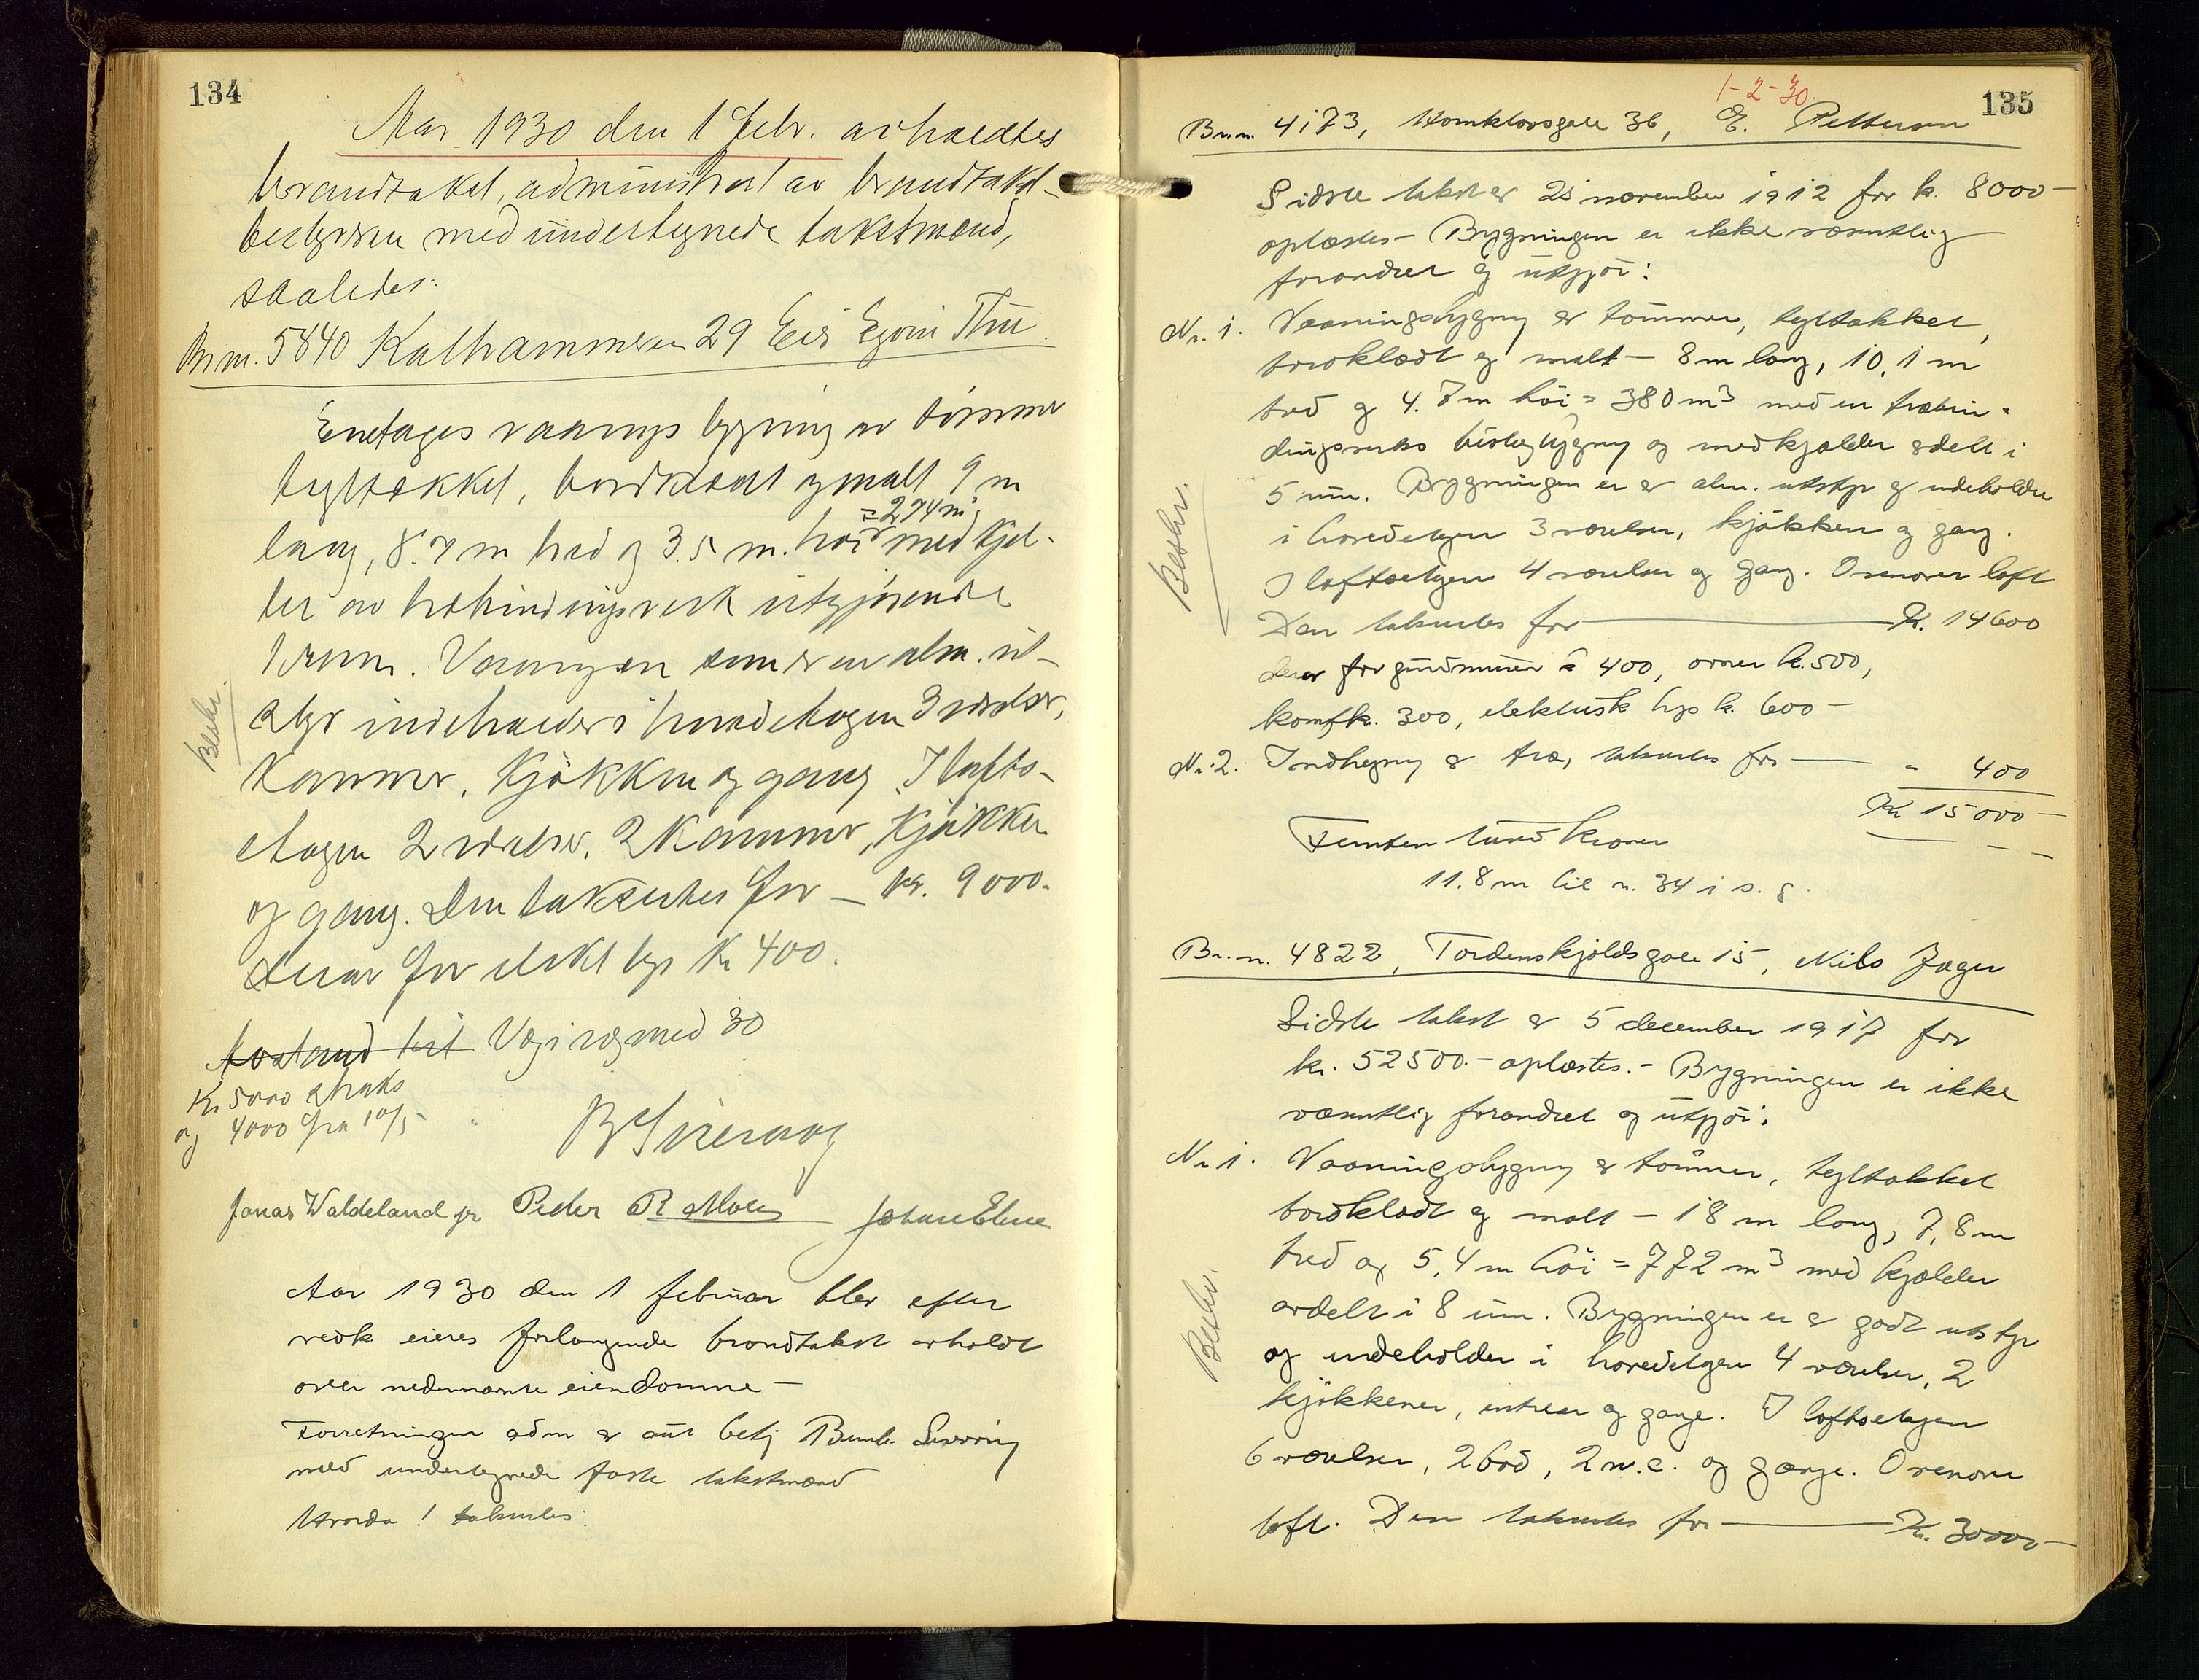 134
Aar 1930 den 1 febr. avholdtes
brandtakst, administrert av brandtakst-
bestyreren med undertegnede takstmænd,
saaledes:
Br.nr. 5840 Kalhammeren 29 Eier Egvin Thu
Enetages vaanings bygning av tømmer
tegltækket, bordklædt og malt 9 m
= 274 m³
lang, 8.7 m bred og 3.5 m. høi med kjel-
ler av træbindingsverk utgjørende
1 rum. Vaaningen som er av alm. ut-
Beskr.
styr indeholder i hovedetagen 3 værelser,
kammer, kjøkken og gang. I lofts-
etagen 2 værelser, 2 kammer, kjøkken
og gang. Den takseres for — kr. 9000.
Derav for elekt lys Kr 400.
Avstand til Væg i væg med 30
Kr 5000 straks
og 4000 fra 10/5
Jonas Waldeland jr Peder R Moe
Aar 1930 den 1 februar blev efter
vedk eieres forlangende brandtakst avholdt
over nedennævnte eiendomme —
Forretningen adm av aut betj Bernh.
med undertegnede faste takstmænd
Hvorda! takseres:
1-2-30
135
Br.nr. 4173, Homklovsgate 36, E. Pettersen
Sidste takst av 25 november 1912 for kr. 8000 —
oplæstes — Bygningen er ikke væsentlig
forandret og utgjør:
Nr. 1. Vaaningsbygning av tømmer, tegltækket,
bordklædt og malt — 8 m lang, 10,1 m
bred og 4.7 m høi = 380 m³ med en træbin-
dingsverks bislagbygning og med kjelder avdelt i
5 rum. Bygningen er av alm. utstyr og indeholder
Beskr.
i hovedetagen 3 værelser, kjøkken og gang.
I loftsetagen 4 værelser og gang. Ovenover loft
Den takseres for — Kr. 14600
derav for grundmuren kr 400, ovner kr. 500,
komfk. 300, elektrisk lys kr. 600 —
Nr. 2. Indhegning av træ, takseres for — " 400
Kr 15000 —
Femten tusind kroner
11.8 m til nr. 34 i s. g.
Br.nr. 4822, Tordenskjolds gate 15, Nils Jæger
Sidste takst av 5 december 1917 for
kr. 52500.— oplæstes.— Bygningen er ikke
væsentlig forandret og utgjør:
Nr 1. Vaaningsbygning av tømmer, tegltækket
bordklædt og malt — 18 m lang, 7,8 m
bred og 5,4 m høi = 772 m³ med kjælder
avdelt i 8 rum. Bygningen er av godt utstyr
Beskr.
og indeholder i hovedetagen 4 værelser, 2
kjøkkener, entreer og gange. I loftsetagen
6 værelser, 2 bod, 2 w.c. og gange. Ovenover
loft. Den takseres for — Kr. 30000 —